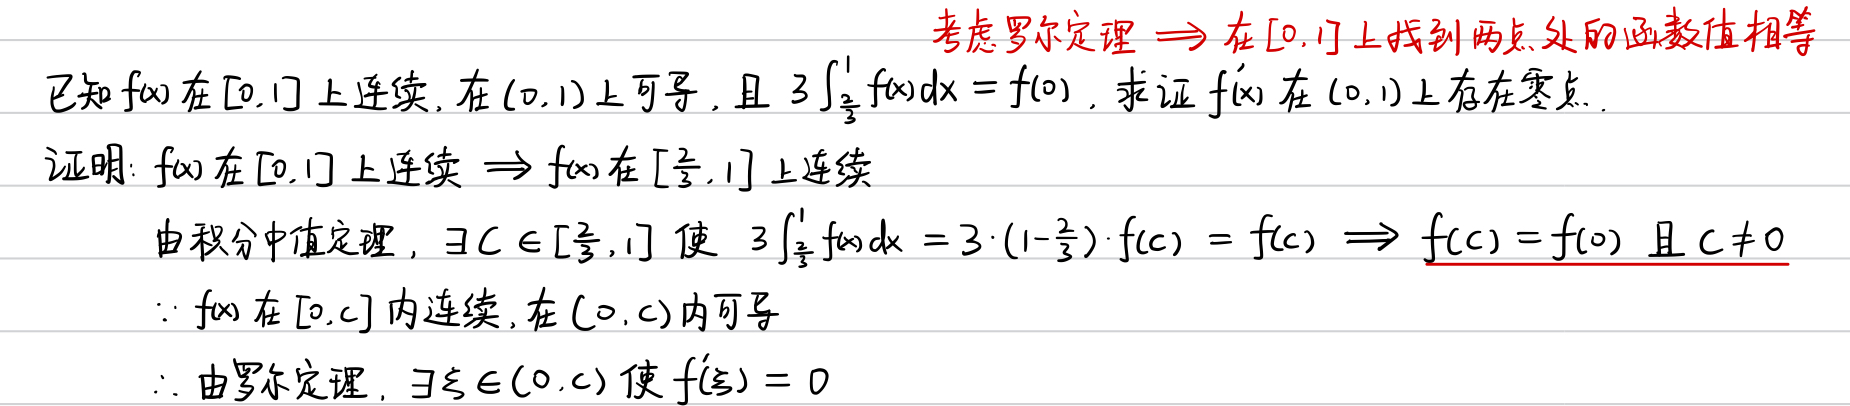 考虑罗尔定理 ⟹ 在[0,1]上找到两点处的函数值相等
已知f(x)在[0,1]上连续,在(0,1)上可导,且 3∫_{2/3}^{1} f(x)dx = f(0),求证 f'(x) 在(0,1)上存在零点.
证明: f(x)在[0,1]上连续 ⟹ f(x)在[2/3,1]上连续
由积分中值定理,∃C∈[2/3,1] 使 3∫_{2/3}^{1} f(x)dx = 3·(1-2/3)·f(c) = f(c) ⟹ f(c)=f(0) 且 C≠0
∵ f(x)在[0,c]内连续,在(0,c)内可导
∴ 由罗尔定理,∃ξ∈(0,c)使f'(ξ)=0